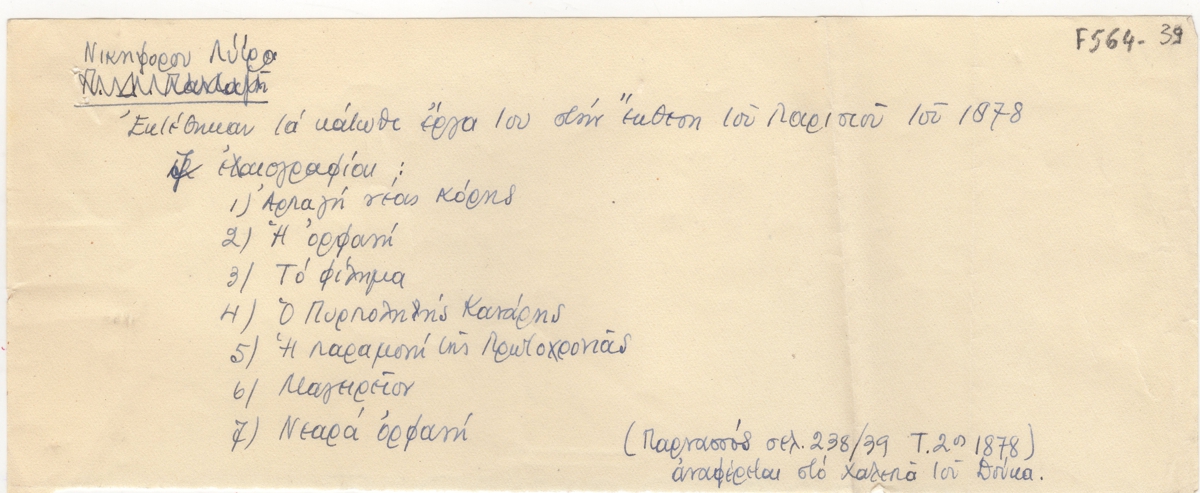 F564-39
Νικηφόρου Λύτρα
Ἐκτέθηκαν τά κάτωθι ἔργα του στήν ἔκθεση τοῦ Παρισιοῦ τοῦ 1878
ἐλαιογραφίαι :
1) Ἁρπαγή νέας κόρης
2) Ἡ ὀρφανή
3) Τό φίλημα
4) Ὁ Πυρπολητής Κανάρης
5) Ἡ παραμονή τῆς Πρωτοχρονιᾶς
6) Μαγειρεῖον
7) Νεαρά ὀρφανή
(Παρνασσός σελ. 238/39 Τ. 2ος 1878)
ἀναφέρεται στό Χαλεπᾶ τοῦ Δούκα.